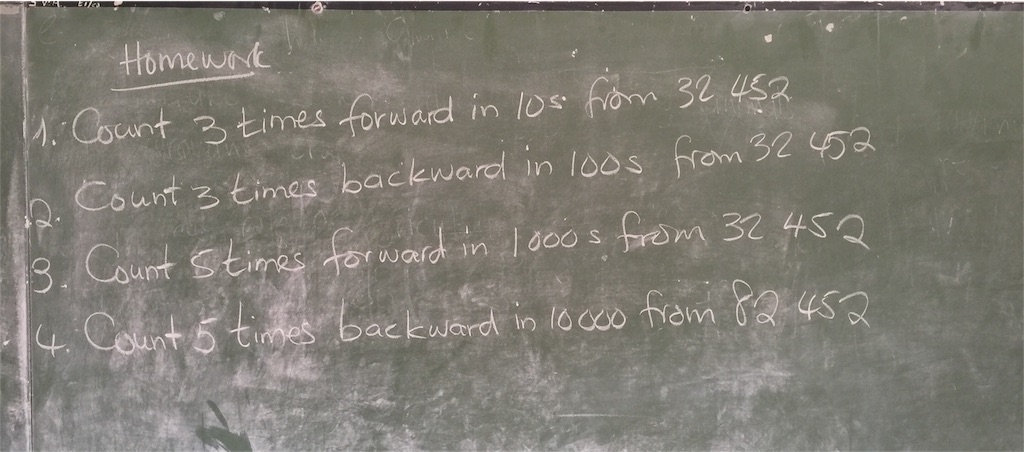 Homework
1. Count 3 times forward in 10s from 32 452
2. Count 3 times backward in 100s from 32 452
3. Count 5 times forward in 1000s from 32 452
4. Count 5 times backward in 10000 from 82 452